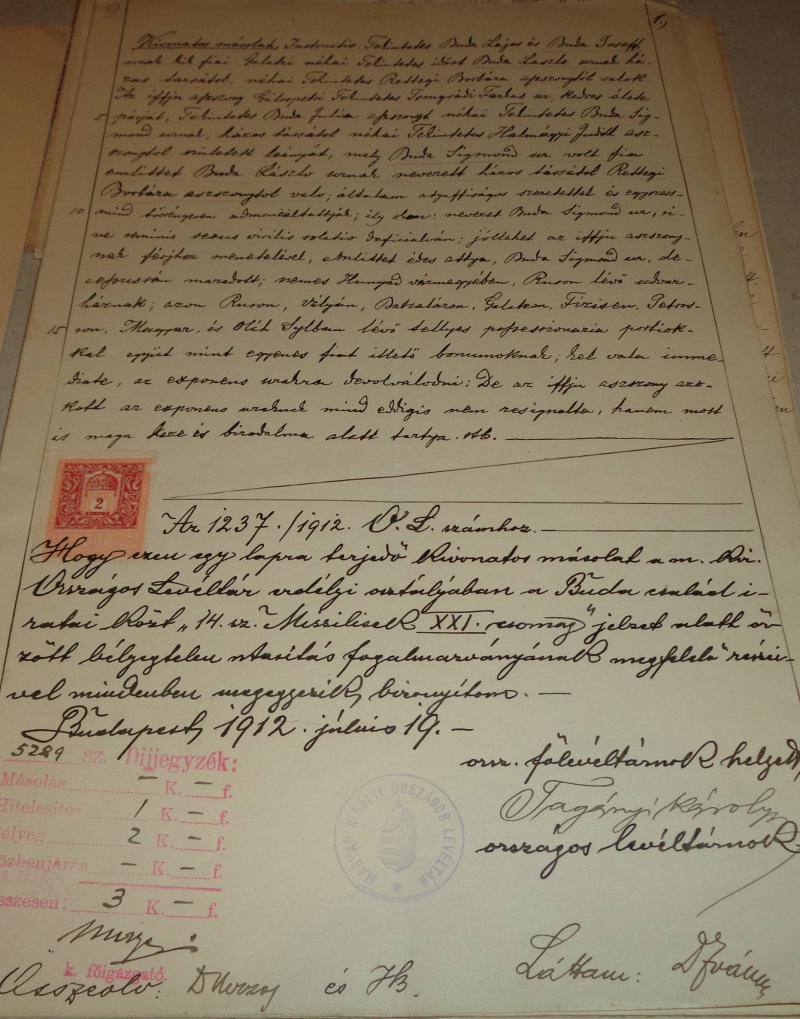 1,
Kivonatos másolat. Instructio. Tekintetes Buda Lajos és Buda Joseff
urnak kik fiai Galatzi néhai Tekintetes idösb Buda László urnak há-
zas társától, néhai Tekintetes Rettegi Borbára aszszonytól valok.
Az iffju aszszony Gálospetri Tekintetes Tsongrádi Farkas ur, kedves élete
5 párját, Tekintetes Buda Julia aszszonyt néhai Tekintetes Buda Sig-
mond urnak, házos társától néhai Tekintetes Halmágyi Judith asz-
szonytól született leányát, mely Buda Sigmond ur volt fia
emlittet Buda László urnak nevezett házos társától Rettegi
Borbára aszszonytól való; általam atyafiságos szeretettel és egyszers-
10 mind törvényesen admoneáltattják; ily okon: nevezet Buda Sigmond ur, si-
ne seminis sexus virilis solatio deficiálván; jóllehet az iffju aszszony-
nak férjhez menetelével, emlittet édes attya, Buda Sigmond ur, de-
cessussán maradott; nemes Hunyad vármegyében, Ruson lévő udvar-
háznak; azon Ruson, Vályán, Batzaláron, Galatzon, Fizisen, Petros-
15 zon, Magyar, és Oláh Sylban lévő tellyes possessionaria portiok-
kal együt mint egyenes fiat illető bonumoknak; kel vala imme-
diate, az exponens urakra devolválodni: De az iffju aszszony azo-
kott az exponens uraknak mind eddigis nem resignálta, hanem most
is maga keze és birodalma alatt tartja. stb.
2
KORONA
Az 1237./1912. O. L. számhoz.
Hogy ezen egy lapra terjedő kivonatos másolat a m. kir.
Országos Levéltár erdélyi osztályában a Buda család i-
ratai közt „14. sz. Missilisek XXI. csomag" jelzet alatt őr-
zött bélyegtelen utasítás fogalmazványának megfelelő részé-
vel mindenben megegyezik, bizonyítom. —
Budapest, 1912. július 19. —
5289 sz. Díjjegyzék:
Másolás — K. — f.
Hitelesítés 1 K. — f.
Bélyeg 2 K. — f.
Közbenjárás — K. — f.
Összesen: 3 K. — f.
MAGYAR KIRÁLYI ORSZÁGOS LEVÉLTÁR
orsz. főlevéltárnok helyett
Tagányi Károly
országos levéltárnok
k. főigazgató.
Összeolv: D Herzog és HB.
Láttam: D Iványi